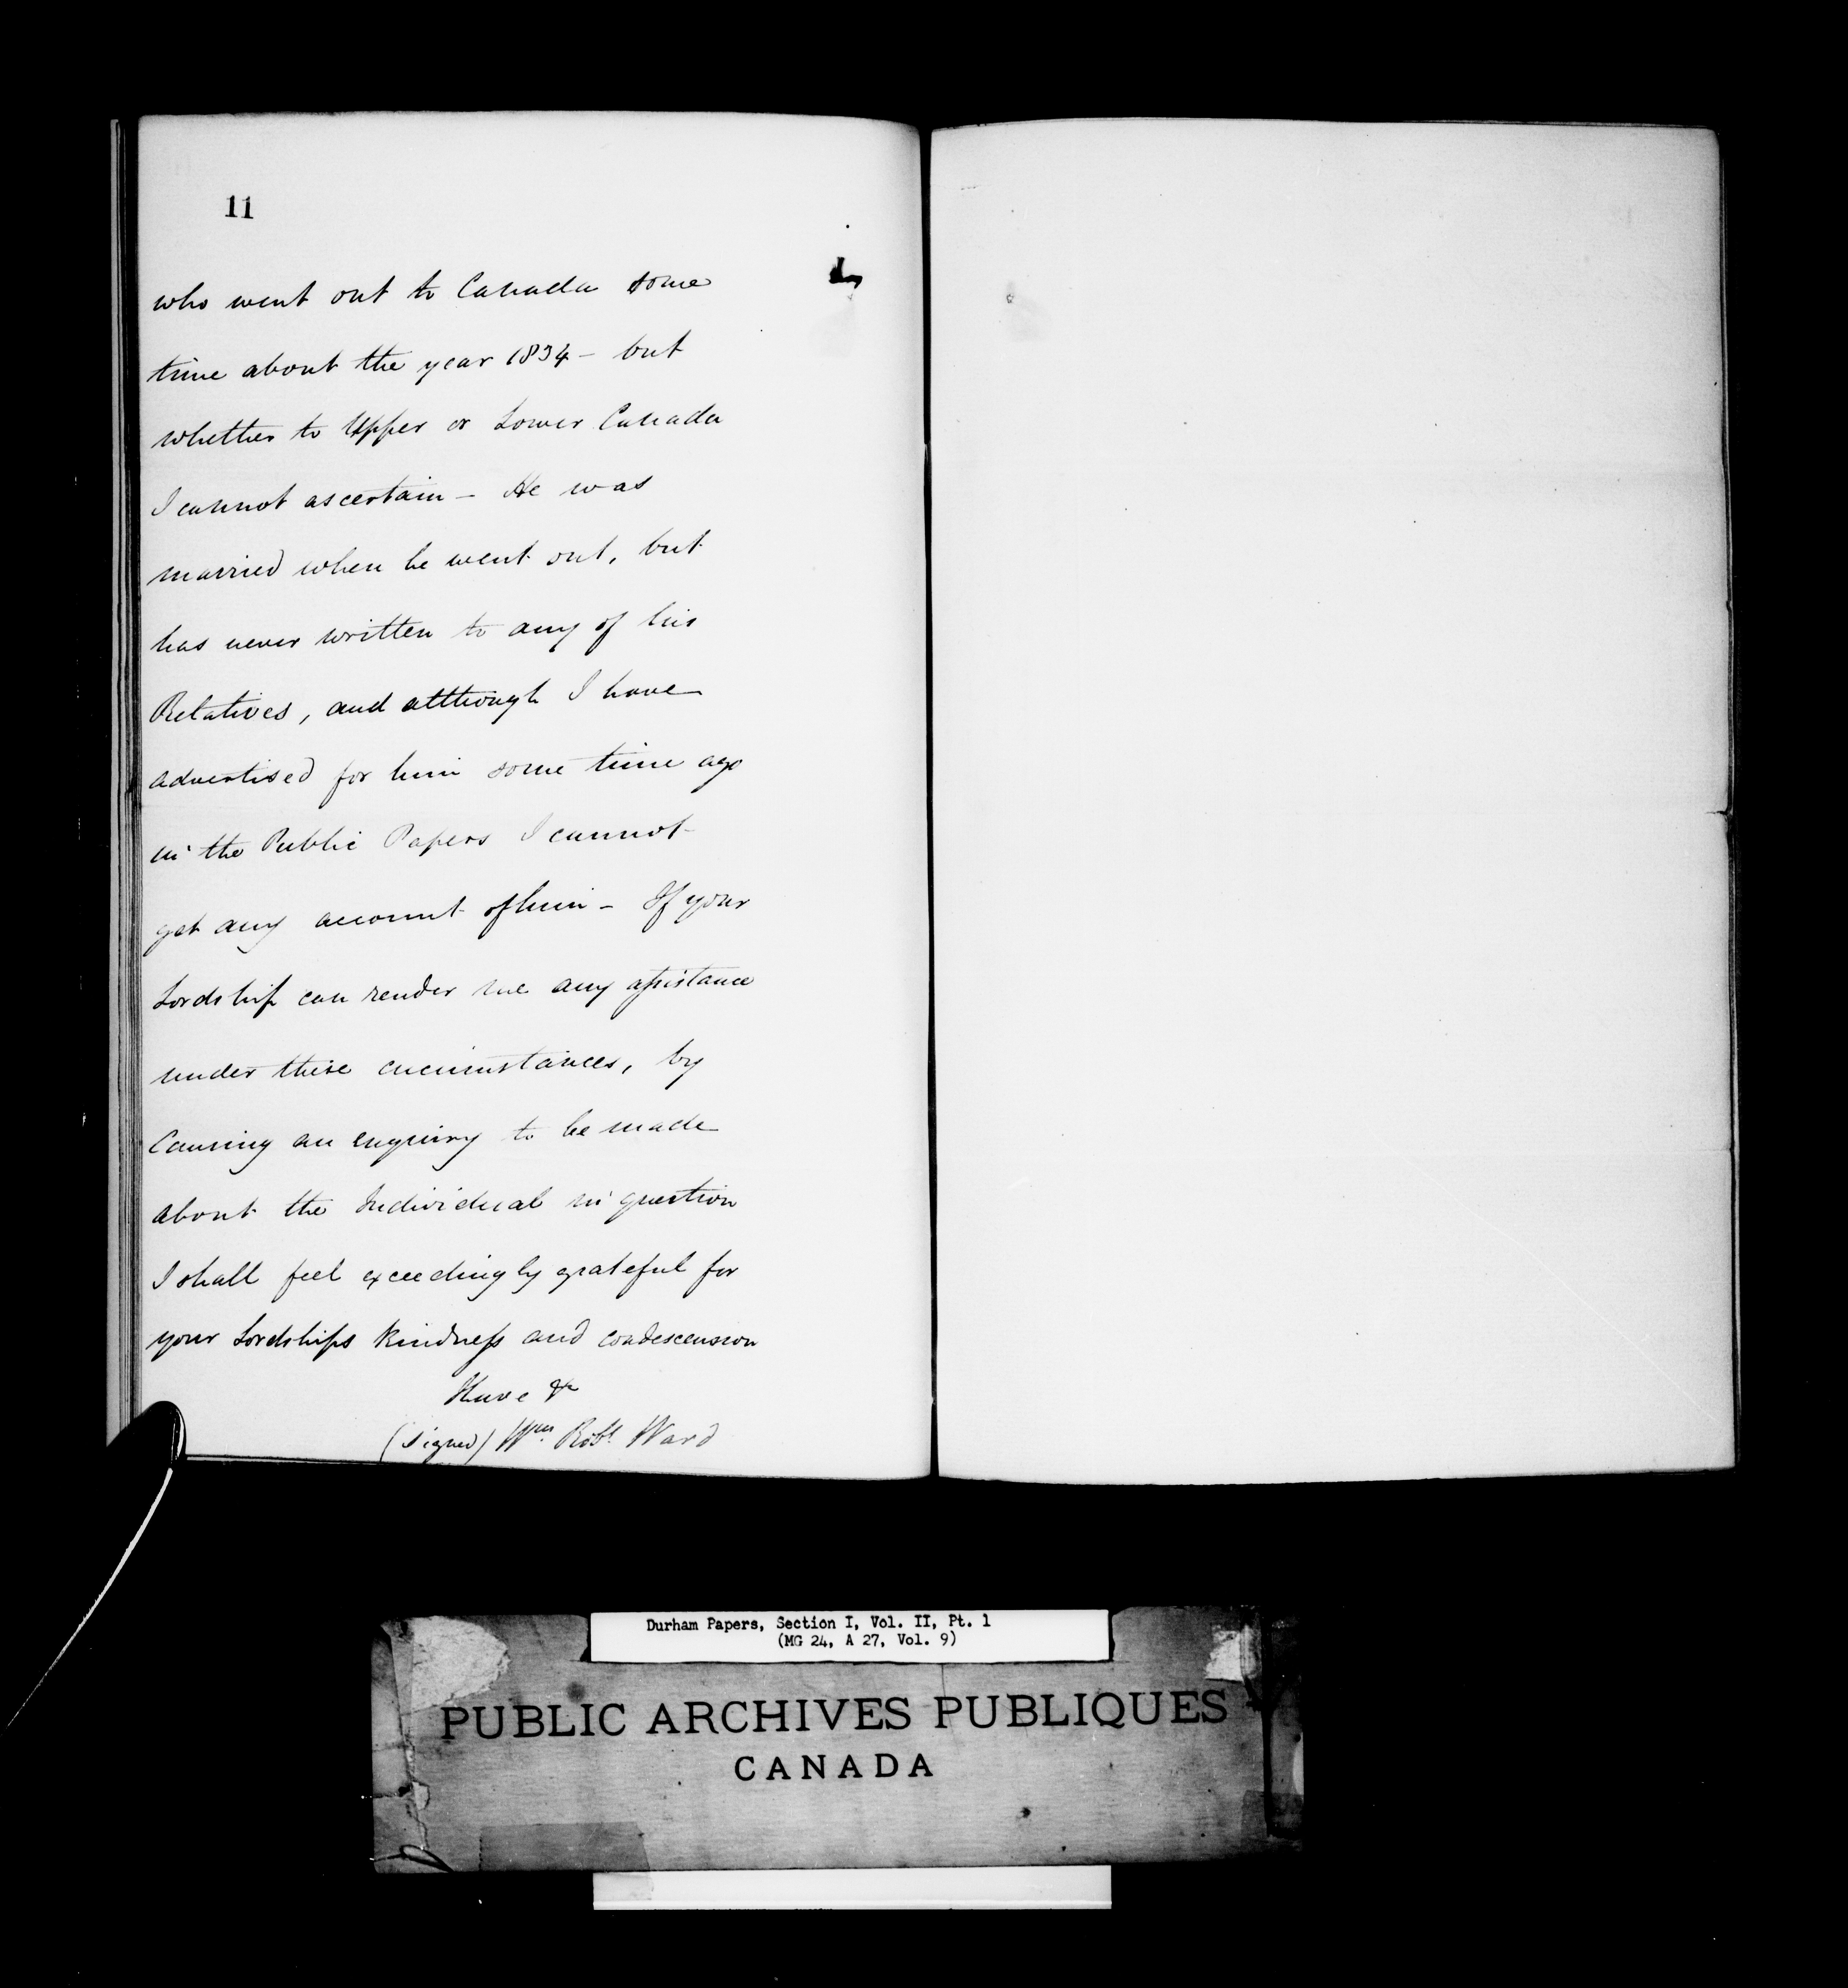 11
who went out to Canada some
time about the year 1834 - but
whether to Upper or Lower Canada
I cannot ascertain - He was
married when he went out, but
has never written to any of his
Relatives, and although I have
advertised for him some time ago
in the Public Papers I cannot
get any account of him - If your
Lordship can render me any assistance
under these circumstances, by
Causing an enquiry to be made
about the Individual in question
I shall feel exceedingly grateful for
your Lordships kindness and condescension
Have &c
(signed) Wm. Robt. Ward
Durham Papers, Section I, Vol. II, Pt. 1
(MG 24, A 27, Vol. 9)
PUBLIC ARCHIVES PUBLIQUES
CANADA